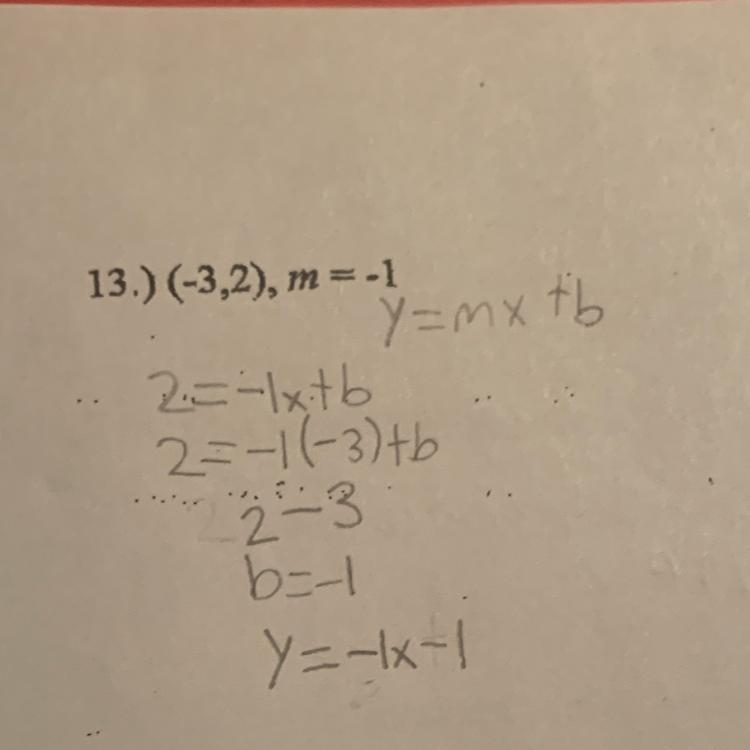 13.) (-3,2), m = -1
y=mx+b
2=-1x+b
2=-1(-3)+b
2-3
b=-1
y=-1x-1